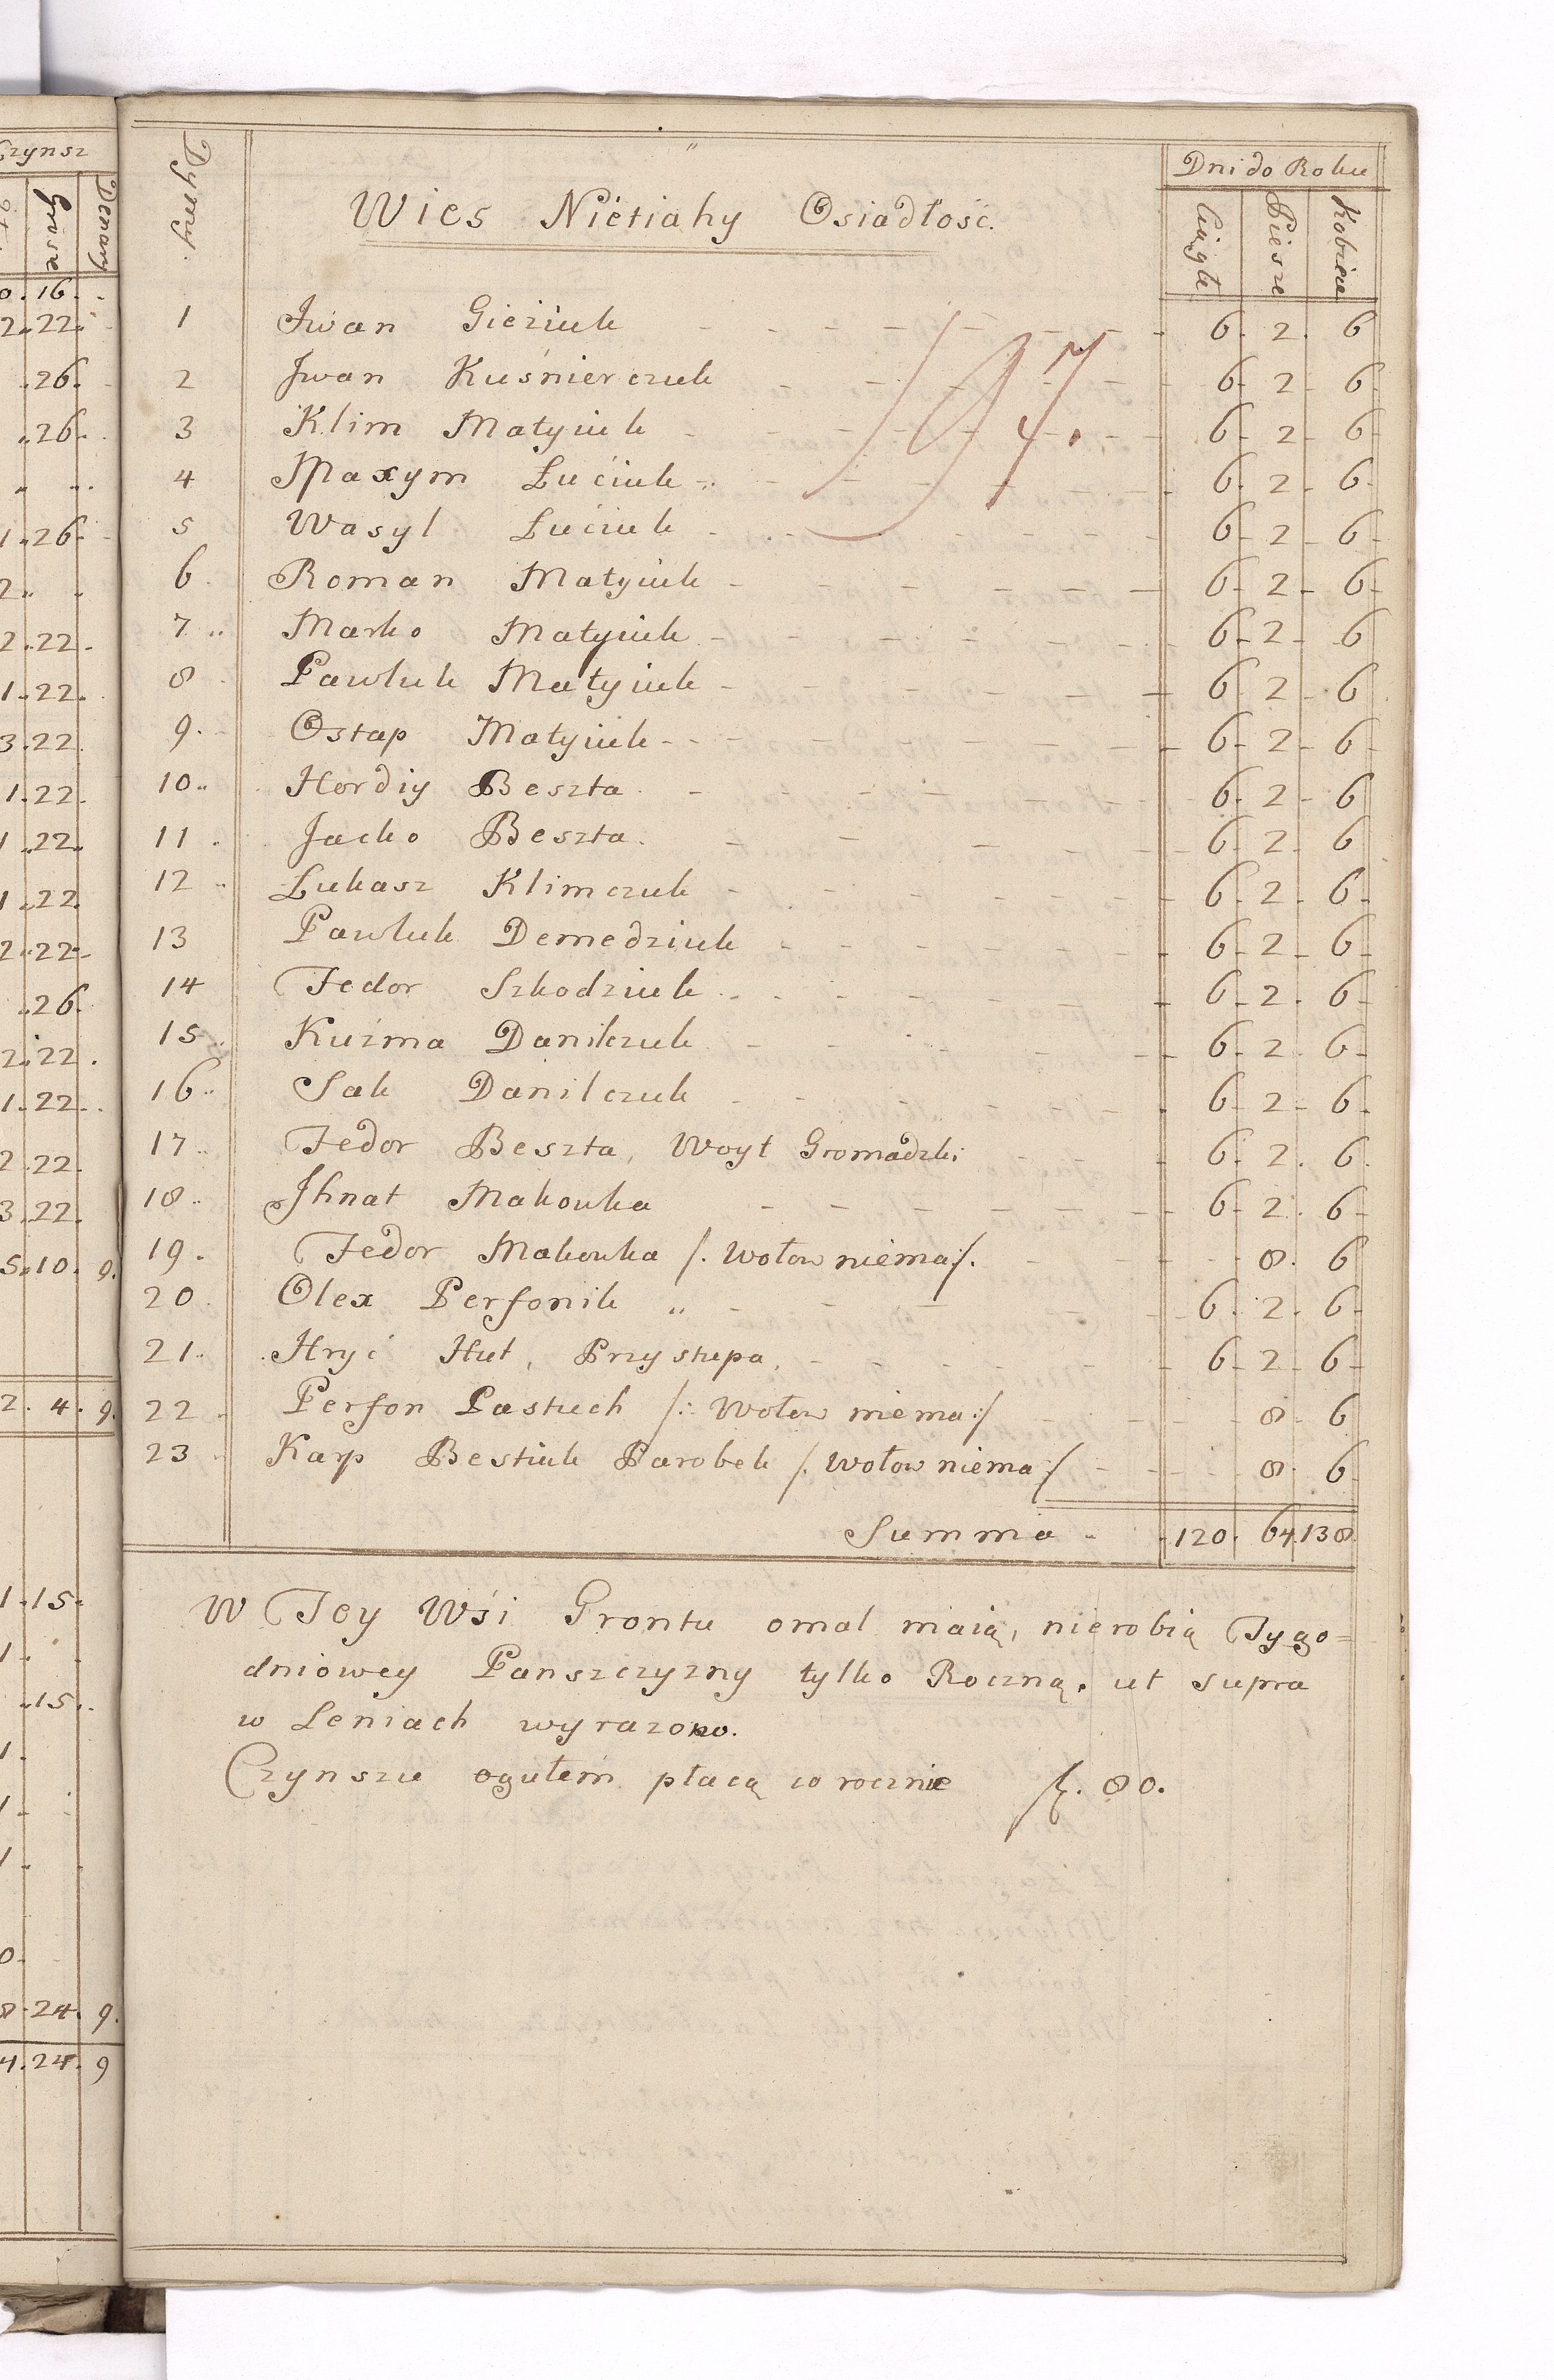 Czynsz
Grosze Denary
0. 16. -
2.. 22..
.. 26.
.. 26.
.. ...
1.. 26.
2..
2.. 22.
1.. 22.
3. 22.
1. 22.
1.. 22..
1.. 22.
2.. 22.
.. 26.
2.. 22.
1.. 22..
2. 22.
3. 22.
5.. 10. 9.
2. 4. 9.
1. 15.
1.
.. 15..
1.
1.
1.
0.
8. 24. 9.
4. 24. 9
Dymy.
Wies Nietiahy Osiadłość.
Dni do Roku
Ciągłe Piesze Kobiece
197.
1 Jwan Gieziuk 6. 2. 6
2 Jwan Kuśnierczuk 6. 2 6.
3 Klim Matyiuk 6. 2 6
4 Maxym Łuciuk 6. 2 6.
5 Wasyl Łuciuk 6. 2 6
6 Roman Matyiuk 6 2 6
7 .. Marko Matyiuk 6 2 6
8 Pawluk Matyiuk 6 2 6
9. Ostap Matyiuk 6 2 6
10.. Hordiy Beszta 6. 2 6
11. Jacko Beszta. 6 2 6
12 .. Łukasz Klimczuk 6 2 6.
13 Pawluk Demedziuk 6 2 6
14 Fedor Szkodziuk 6 2. 6
15. Kuzma Danilczuk 6 2. 6
16.. Sak Danilczuk 6 2 6.
17.. Fedor Beszta, Woyt Gromadzki 6. 2. 6.
18.. Jhnat Makouka 6 2. 6
19. Fedor Makouka /. Wołow niema /. 8. 6
20. Olex Perfonik .. 6. 2. 6
21.. Hryć Hut, Przystupa. 6 2 6
22. Perfon Pastuch /: Wołow niema :/ 8 6
23. Karp Bestiuk Parobek /. Wołow niema :/ 8. 6
Summa 120. 64. 138.
W Tey Wsi Grontu omal maią, nierobią Tygo=
dniowey Panszczyzny tylko Roczną. ut supra
w Leniach wyrazono.
Czynszu ogułem płacą co rocznie f. 80.